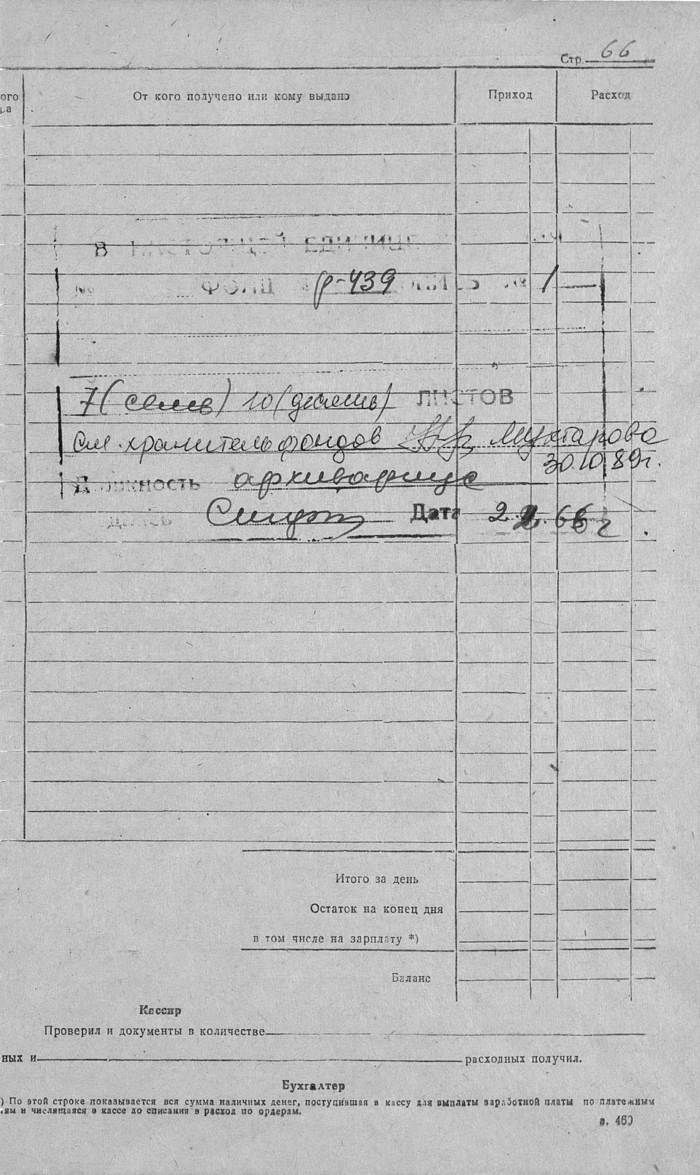 Стр. 66
ого
От кого получено или кому выдано
Приход
Расход
В НАСТОЯЩЕЙ ЕДИНИЦЕ
№ ФОНД р-439 ОПИСЬ № 1
7 (семь) 10 (десять) ЛИСТОВ
хранитель фондов Мухтарова
30.10.89г.
Должность архивариус
Дата 2. 66 г
Итого за день
Остаток на конец дня
в том числе на зарплату *)
Баланс
Кассир
Проверил и документы в количестве
ных и расходных получил.
Бухгалтер
) По этой строке показывается вся сумма наличных денег, поступившая в кассу для выплаты заработной платы по платежным
и числящаяся в кассе до списания в расход по ордерам.
з. 460